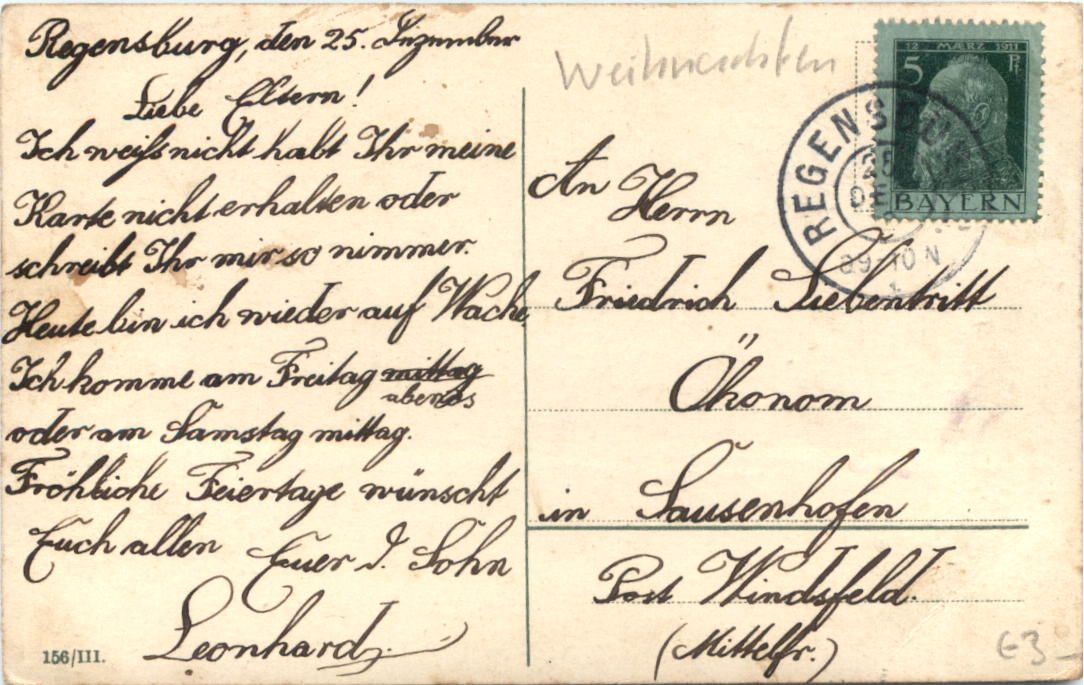 Regensburg, den 25. Dezember
Liebe Eltern!
Ich weiß nicht habt Ihr meine
Karte nicht erhalten oder
schreibt Ihr mir so nimmer.
Heute bin ich wieder auf Wache,
Ich komme am Freitag mittag
abends
oder am Samstag mittag.
Fröhliche Feiertage wünscht
Euch allen Euer l. Sohn
Leonhard.
156/III.
Weihnachten
12 MÆRZ 1911
5 Pf.
BAYERN
REGENSBU
25
DE
89-10 N
1
An Herrn
Friedrich Liebentritt
Ökonom
in Sausenhofen
Post Windsfeld.
(Mittelfr.)
€3-